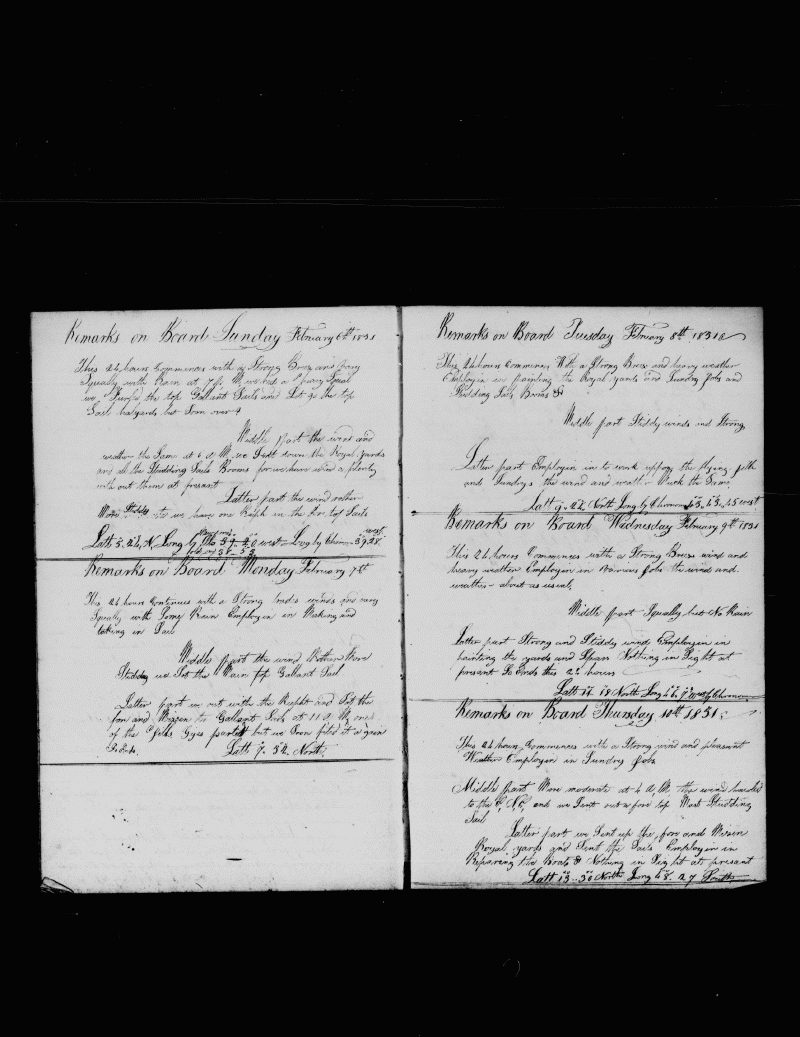 Remarks on Board Sunday February 6th 1831
This 24 hours Commences with a Strong Breez and very
Squally with Rain at 7 P. M. we had a heavy Squal
we furld the top Gallant Sails and Let go the top
Sail halyards but Soon over
Middle Part the wind and
weather the Same at 6 A M. we Sent down the Royal yards
and all the Studding Sails Booms for we have wind a plenty
with out them at present
Latter Part the wind rather
More Stiddy we have one Reef in the top Sails
Latt 5. 24, N. Long by 39 20 west Long by Chron 39 28 west
Remarks on Board Monday February 7th
This 24 hours Continues with a Strong trade winds and very
Squally with Some Rain Employen in Making and
taking in Sail
Middle Part the wind Rather More
Stiddy we Sot the Main top Gallant Sail
Latter part we out with the Reefs and Sot the
fore and Mizen to Gallant Sails at 11 A. M, one
of the Gyes parted but we Soon fixed it again
Latt 7. 32 North.
Remarks on Board Tuesday February 8th 1831
This 24 hours Commences With a Strong Breez and heavy weather
Employen in painting the Royal yards and Sundry Jobs and
Studding Sails Booms &
Middle part Stiddy winds and Strong
Latter part Employen in to work uppon the flying Jibb
and Sundrys the wind and weather Much the Same
Latt 9. 22 North Long by Chronom 43. 45 west
Remarks on Board Wednesday February 9th 1831
This 24 hours Commences with a Strong Breez wind and
heavy weather Employen in Various Jobs the wind and
weather about as usual,
Middle part Squally but No Rain
Latter part Strong and Stiddy winds Employen in
painting the yards and Spars Nothing in Sight at
present So Ends this 24 hours
Latt 11. 18 North Long 46. 9 west by Chronom
Remarks on Board Thursday 10th 1831
This 24 hours Commences with a Strong wind and pleasant
Weather Employen in Sundry Jobs
Middle part More moderate at 4 A, M. the wind hauled
to the and we Sent out a fore top Mast Studding
Sail
Latter part we Sent up the fore and Mizen
Royal yards and Sent the Sails Employen in
Repairing the Boats & Nothing in Sight at present
Latt 13. 30 North Long 48. 27